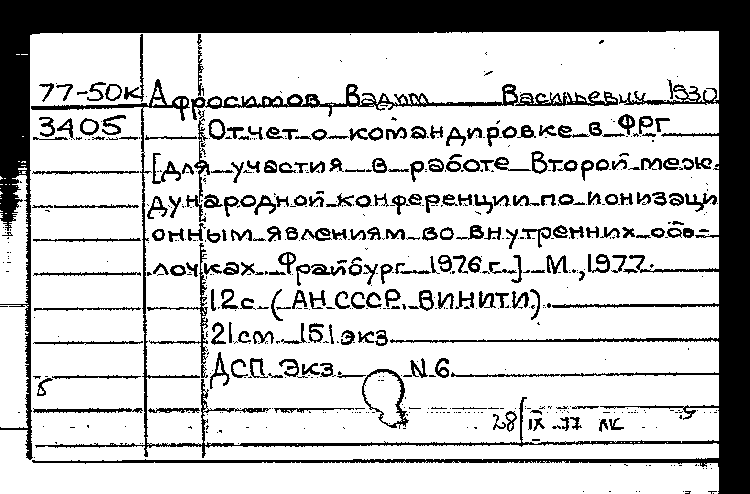 77-50к Афросимов, Вадим Васильевич 1930
3405 Отчет о командировке в ФРГ
[для участия в работе Второй меж-
дународной конференции по ионизаци
онным явлениям во внутренних обо-
лочках. Фрайбург 1976 г.] М., 1977.
12с (АН СССР. ВИНИТИ).
21см 151экз
ДСП. Экз. N6.
б
28/IX-77